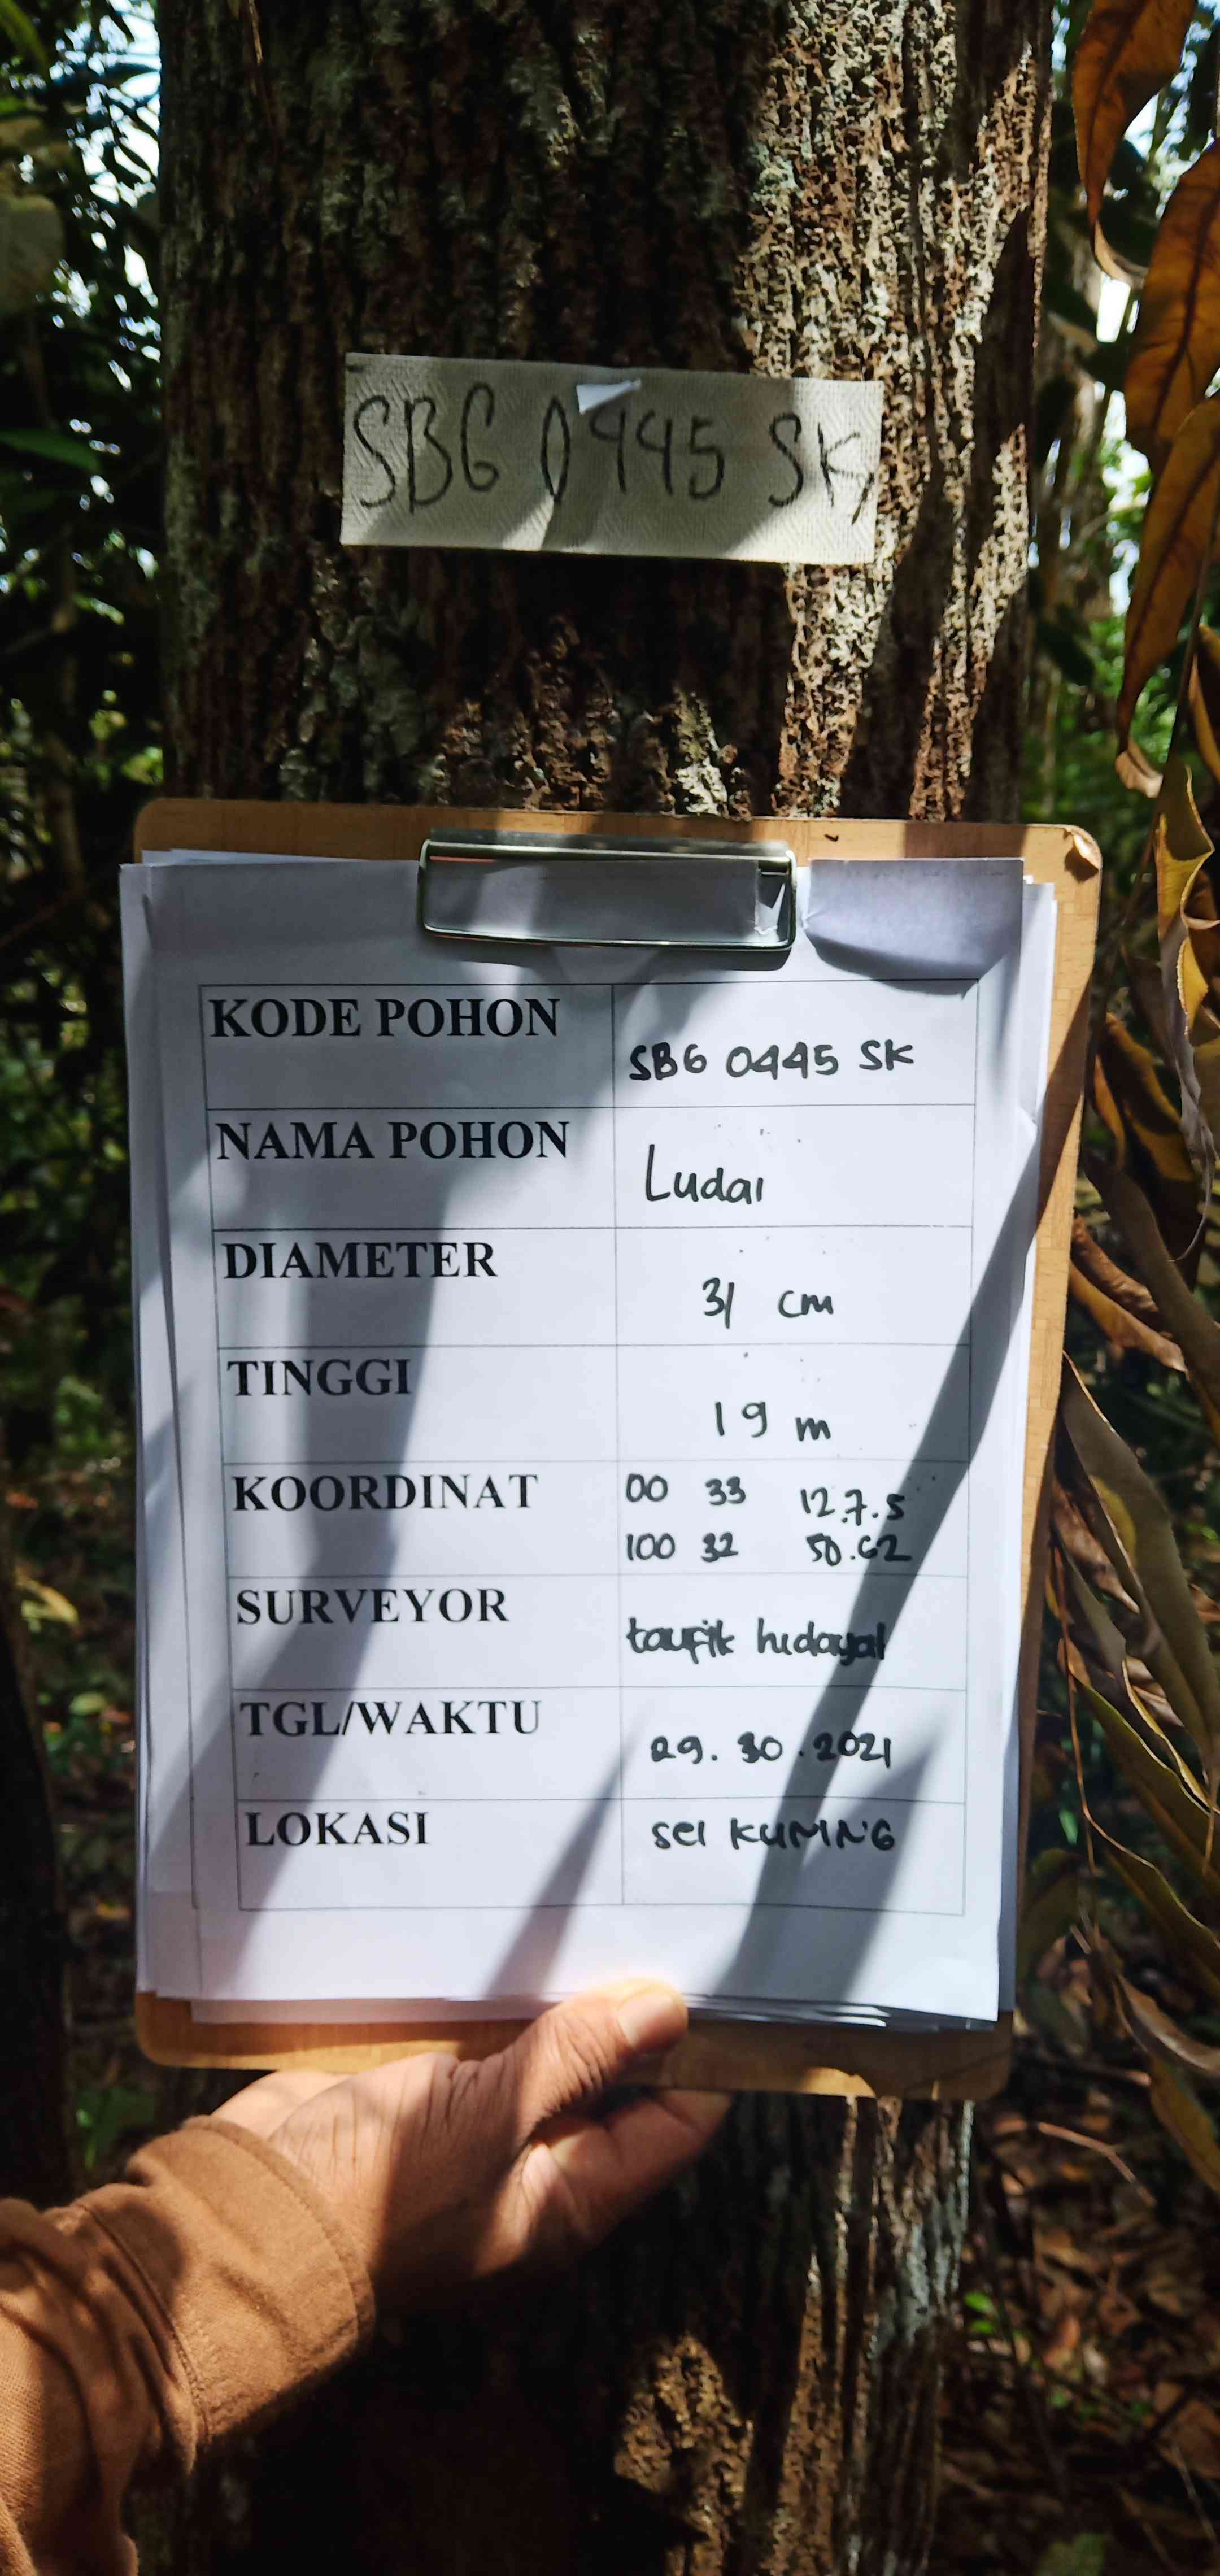 SBG 0445 SK
KODE POHON
SBG 0445 SK
NAMA POHON
Ludai
DIAMETER
31 cm
TINGGI
19 m
KOORDINAT
00 33 12.7.5
100 32 50.62
SURVEYOR
taufik hidayat
TGL/WAKTU
29.30.2021
LOKASI
SEI KUNING